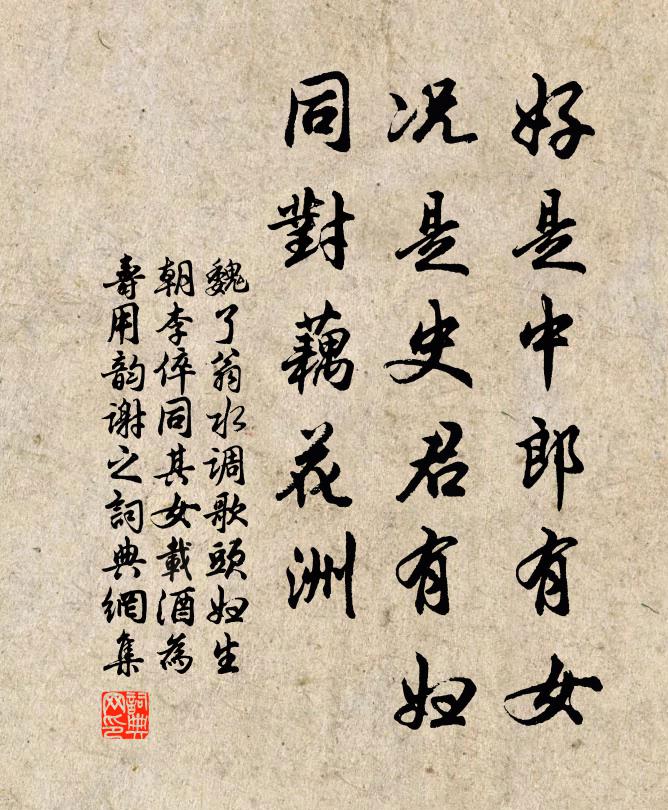 好是中郎有女
况是史君有妇
同對藕花洲
魏了翁水调歌頭妇生
朝李倅同其女載酒為
壽用韵谢之詞典網集
詞典网印